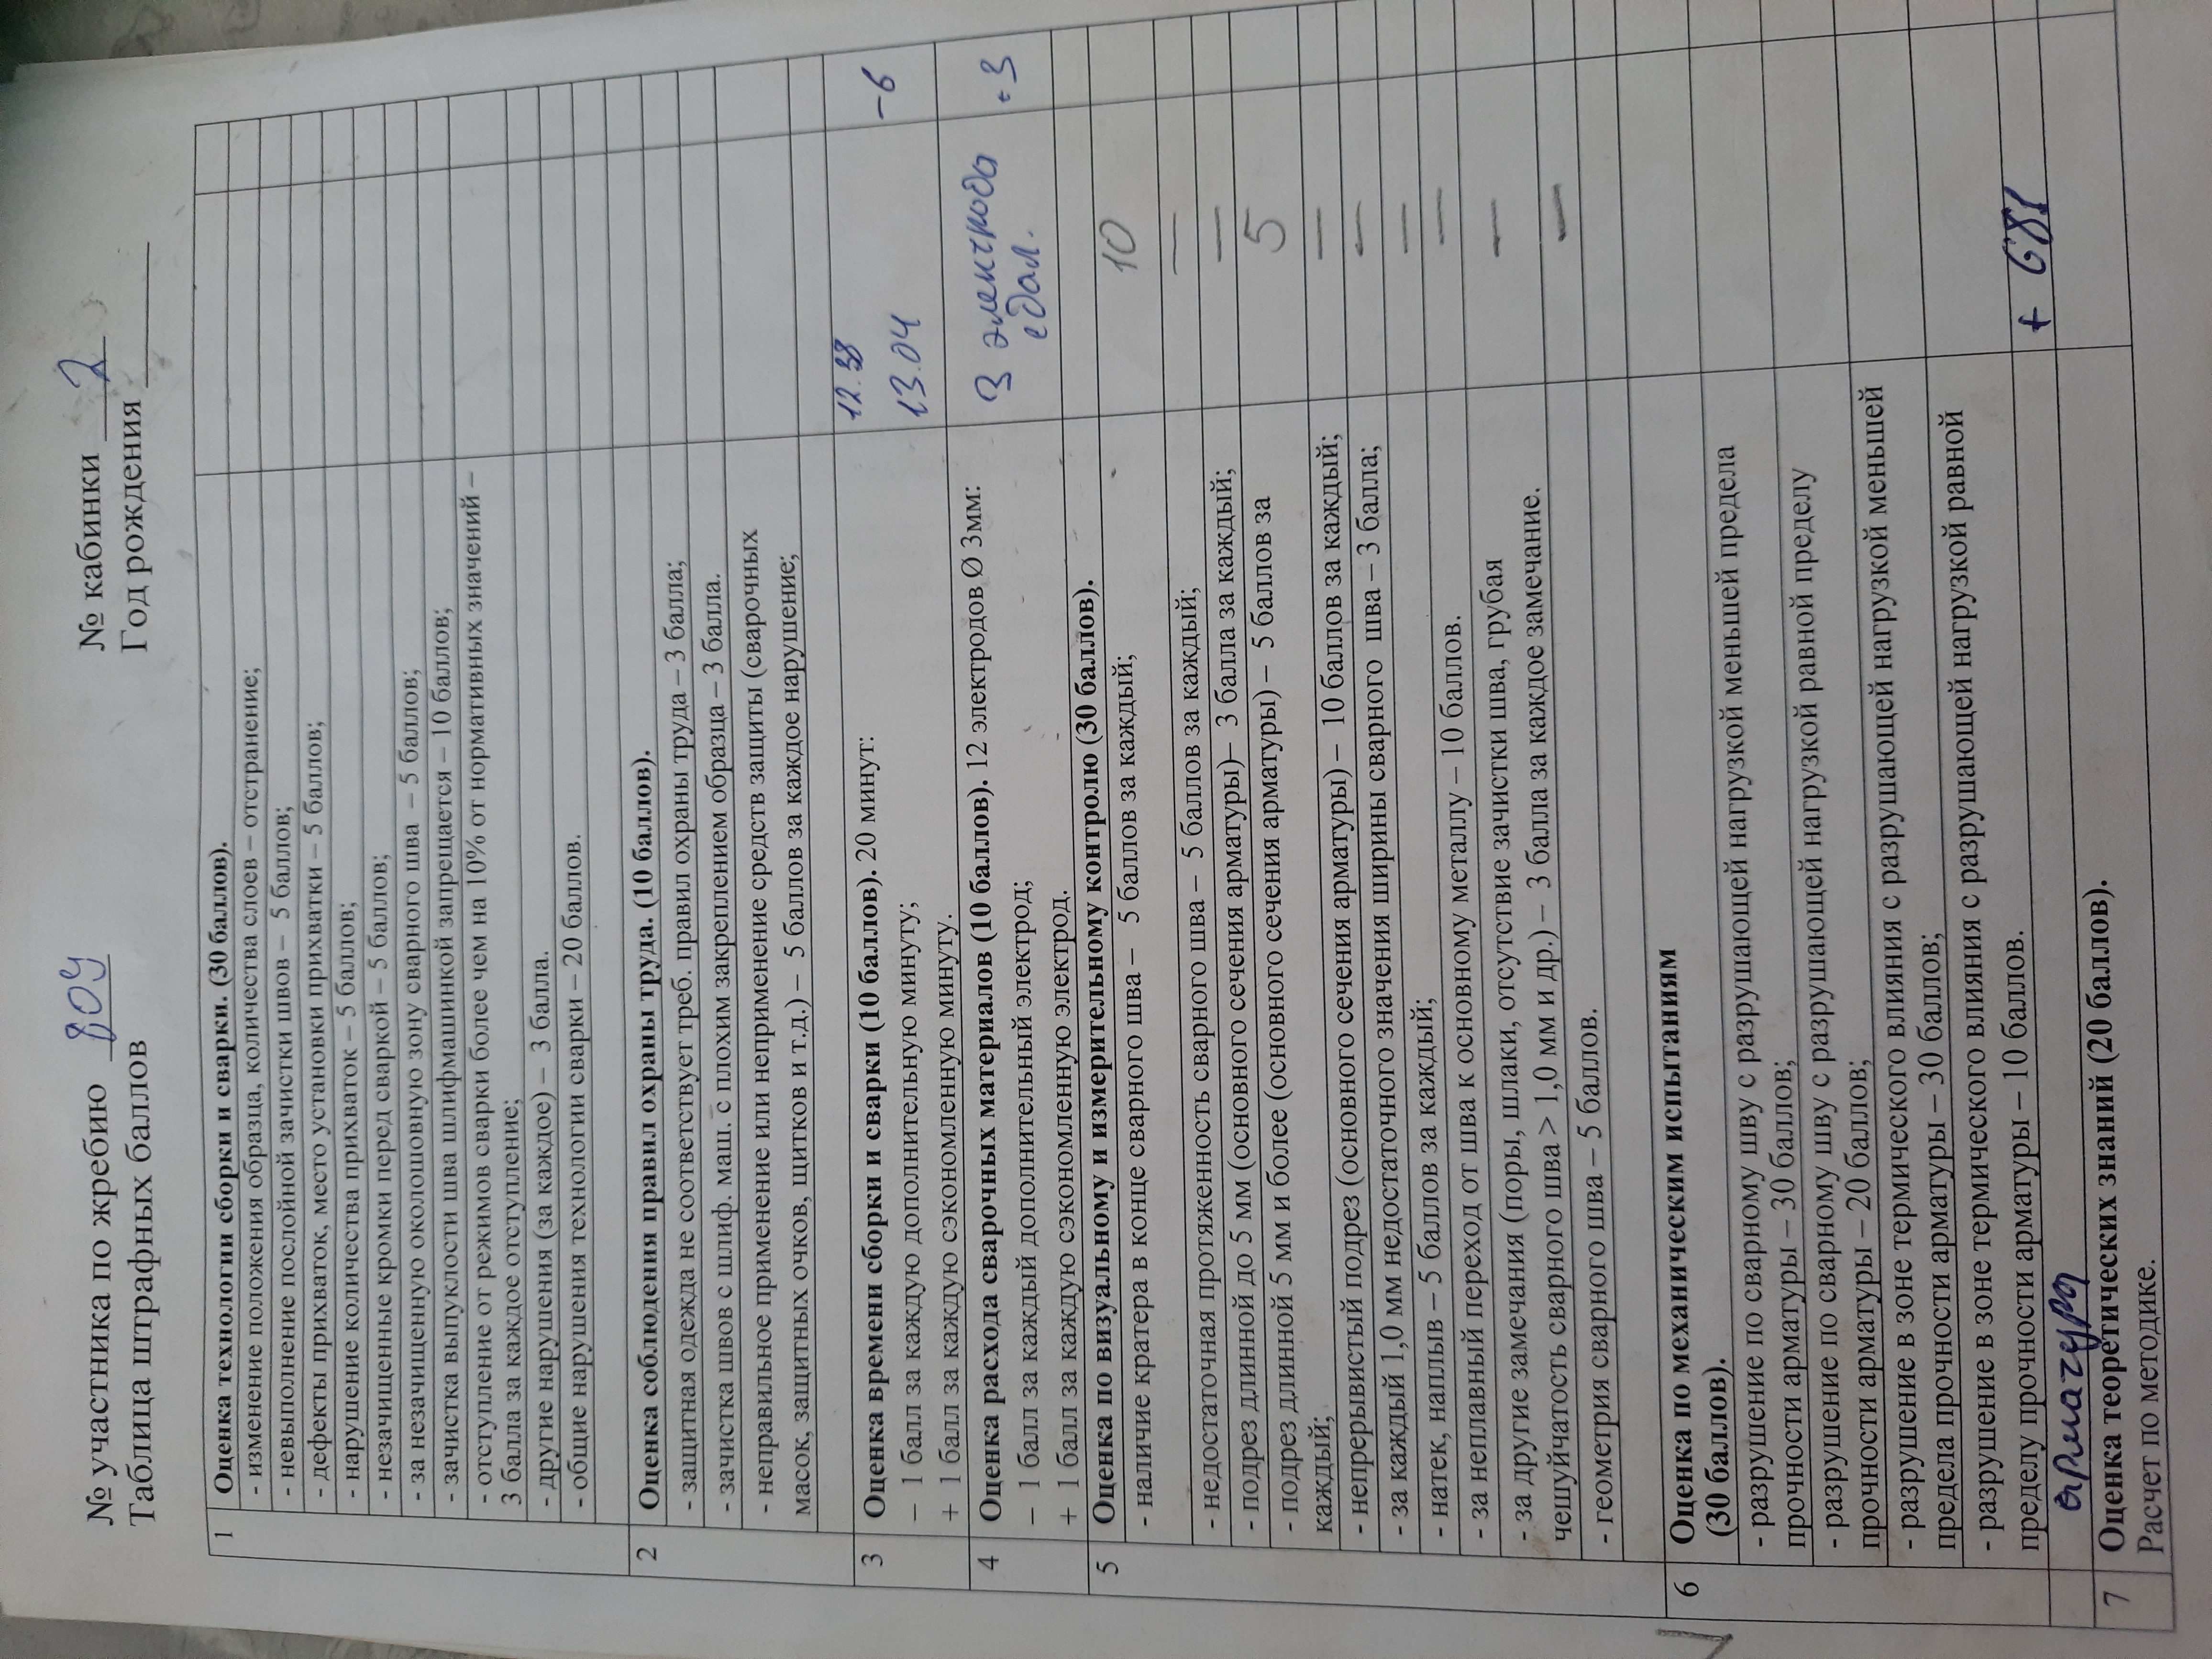 № участника по жребию 809 № кабинки 2
Таблица штрафных баллов Год рождения
1 Оценка технологии сборки и сварки. (30 баллов).
- изменение положения образца, количества слоев – отстранение;
- невыполнение послойной зачистки швов – 5 баллов;
- дефекты прихваток, место установки прихватки – 5 баллов;
- нарушение количества прихваток – 5 баллов;
- незачищенные кромки перед сваркой – 5 баллов;
- за незачищенную околошовную зону сварного шва – 5 баллов;
- зачистка выпуклости шва шлифмашинкой запрещается – 10 баллов;
- отступление от режимов сварки более чем на 10% от нормативных значений –
3 балла за каждое отступление;
- другие нарушения (за каждое) – 3 балла.
- общие нарушения технологии сварки – 20 баллов.
2 Оценка соблюдения правил охраны труда. (10 баллов).
- защитная одежда не соответствует треб. правил охраны труда – 3 балла;
- зачистка швов с шлиф. маш. с плохим закреплением образца – 3 балла.
- неправильное применение или неприменение средств защиты (сварочных
масок, защитных очков, щитков и т.д.) – 5 баллов за каждое нарушение;
3 Оценка времени сборки и сварки (10 баллов). 20 минут: 12.38
– 1 балл за каждую дополнительную минуту; 13.04 -6
+ 1 балл за каждую сэкономленную минуту.
4 Оценка расхода сварочных материалов (10 баллов). 12 электродов Ø 3мм: 3 электрода +3
– 1 балл за каждый дополнительный электрод; сдал.
+ 1 балл за каждую сэкономленную электрод.
5 Оценка по визуальному и измерительному контролю (30 баллов).
- наличие кратера в конце сварного шва – 5 баллов за каждый; 10
- недостаточная протяженность сварного шва – 5 баллов за каждый; —
- подрез длинной до 5 мм (основного сечения арматуры)– 3 балла за каждый; —
- подрез длинной 5 мм и более (основного сечения арматуры) – 5 баллов за 5
каждый;
- непрерывистый подрез (основного сечения арматуры) – 10 баллов за каждый; —
- за каждый 1,0 мм недостаточного значения ширины сварного шва – 3 балла; —
- натек, наплыв – 5 баллов за каждый; —
- за неплавный переход от шва к основному металлу – 10 баллов. —
- за другие замечания (поры, шлаки, отсутствие зачистки шва, грубая —
чешуйчатость сварного шва > 1,0 мм и др.) – 3 балла за каждое замечание.
- геометрия сварного шва – 5 баллов. —
6 Оценка по механическим испытаниям
(30 баллов).
- разрушение по сварному шву с разрушающей нагрузкой меньшей предела
прочности арматуры – 30 баллов;
- разрушение по сварному шву с разрушающей нагрузкой равной пределу
прочности арматуры – 20 баллов;
- разрушение в зоне термического влияния с разрушающей нагрузкой меньшей
предела прочности арматуры – 30 баллов;
- разрушение в зоне термического влияния с разрушающей нагрузкой равной
пределу прочности арматуры – 10 баллов.
арматура + 681
7 Оценка теоретических знаний (20 баллов).
Расчет по методике.